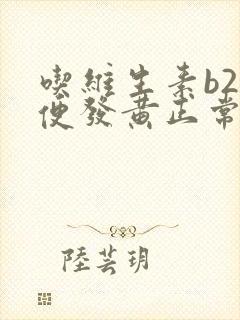 喫維生素b2
便發黃正常
陸芸玥